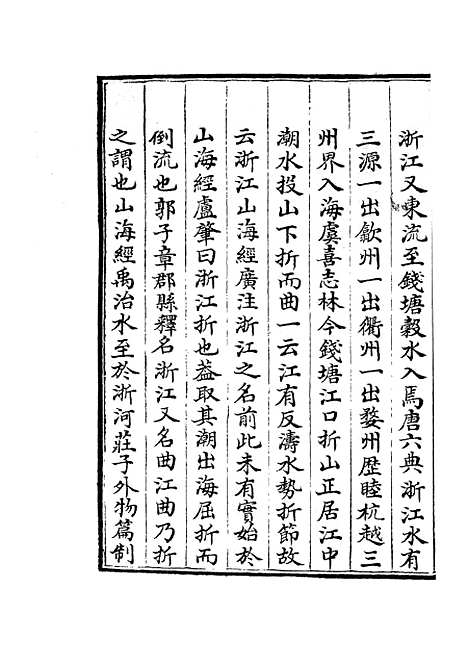 浙江又東流至錢塘穀水入焉唐六典浙江水有
三源一出歙州一出衢州一出婺州歴睦杭越三
州界入海虞喜志林今錢塘江口折山正居江中
潮水投山下折而曲一云江有反濤水勢折節故
云浙江山海經廣注浙江之名前此未有實始於
山海經盧肇曰浙江折也葢取其潮出海屈折而
倒流也郭子章郡縣釋名浙江又名曲江曲乃折
之謂也山海經禹治水至於浙河莊子外物篇制